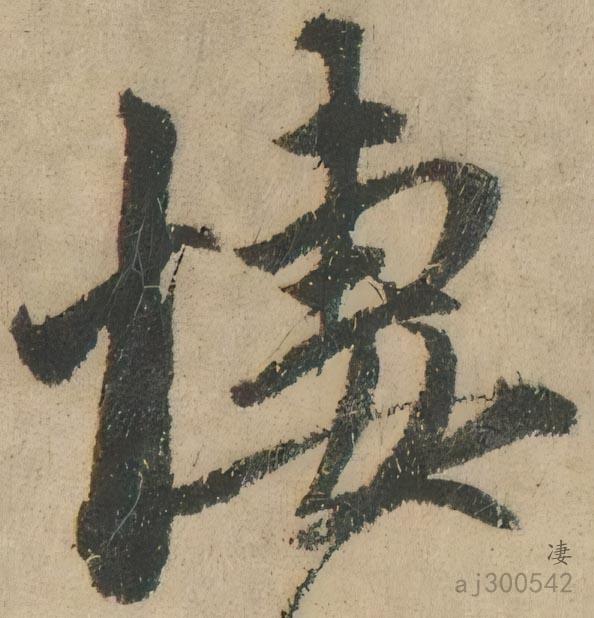 悽
凄
aj300542